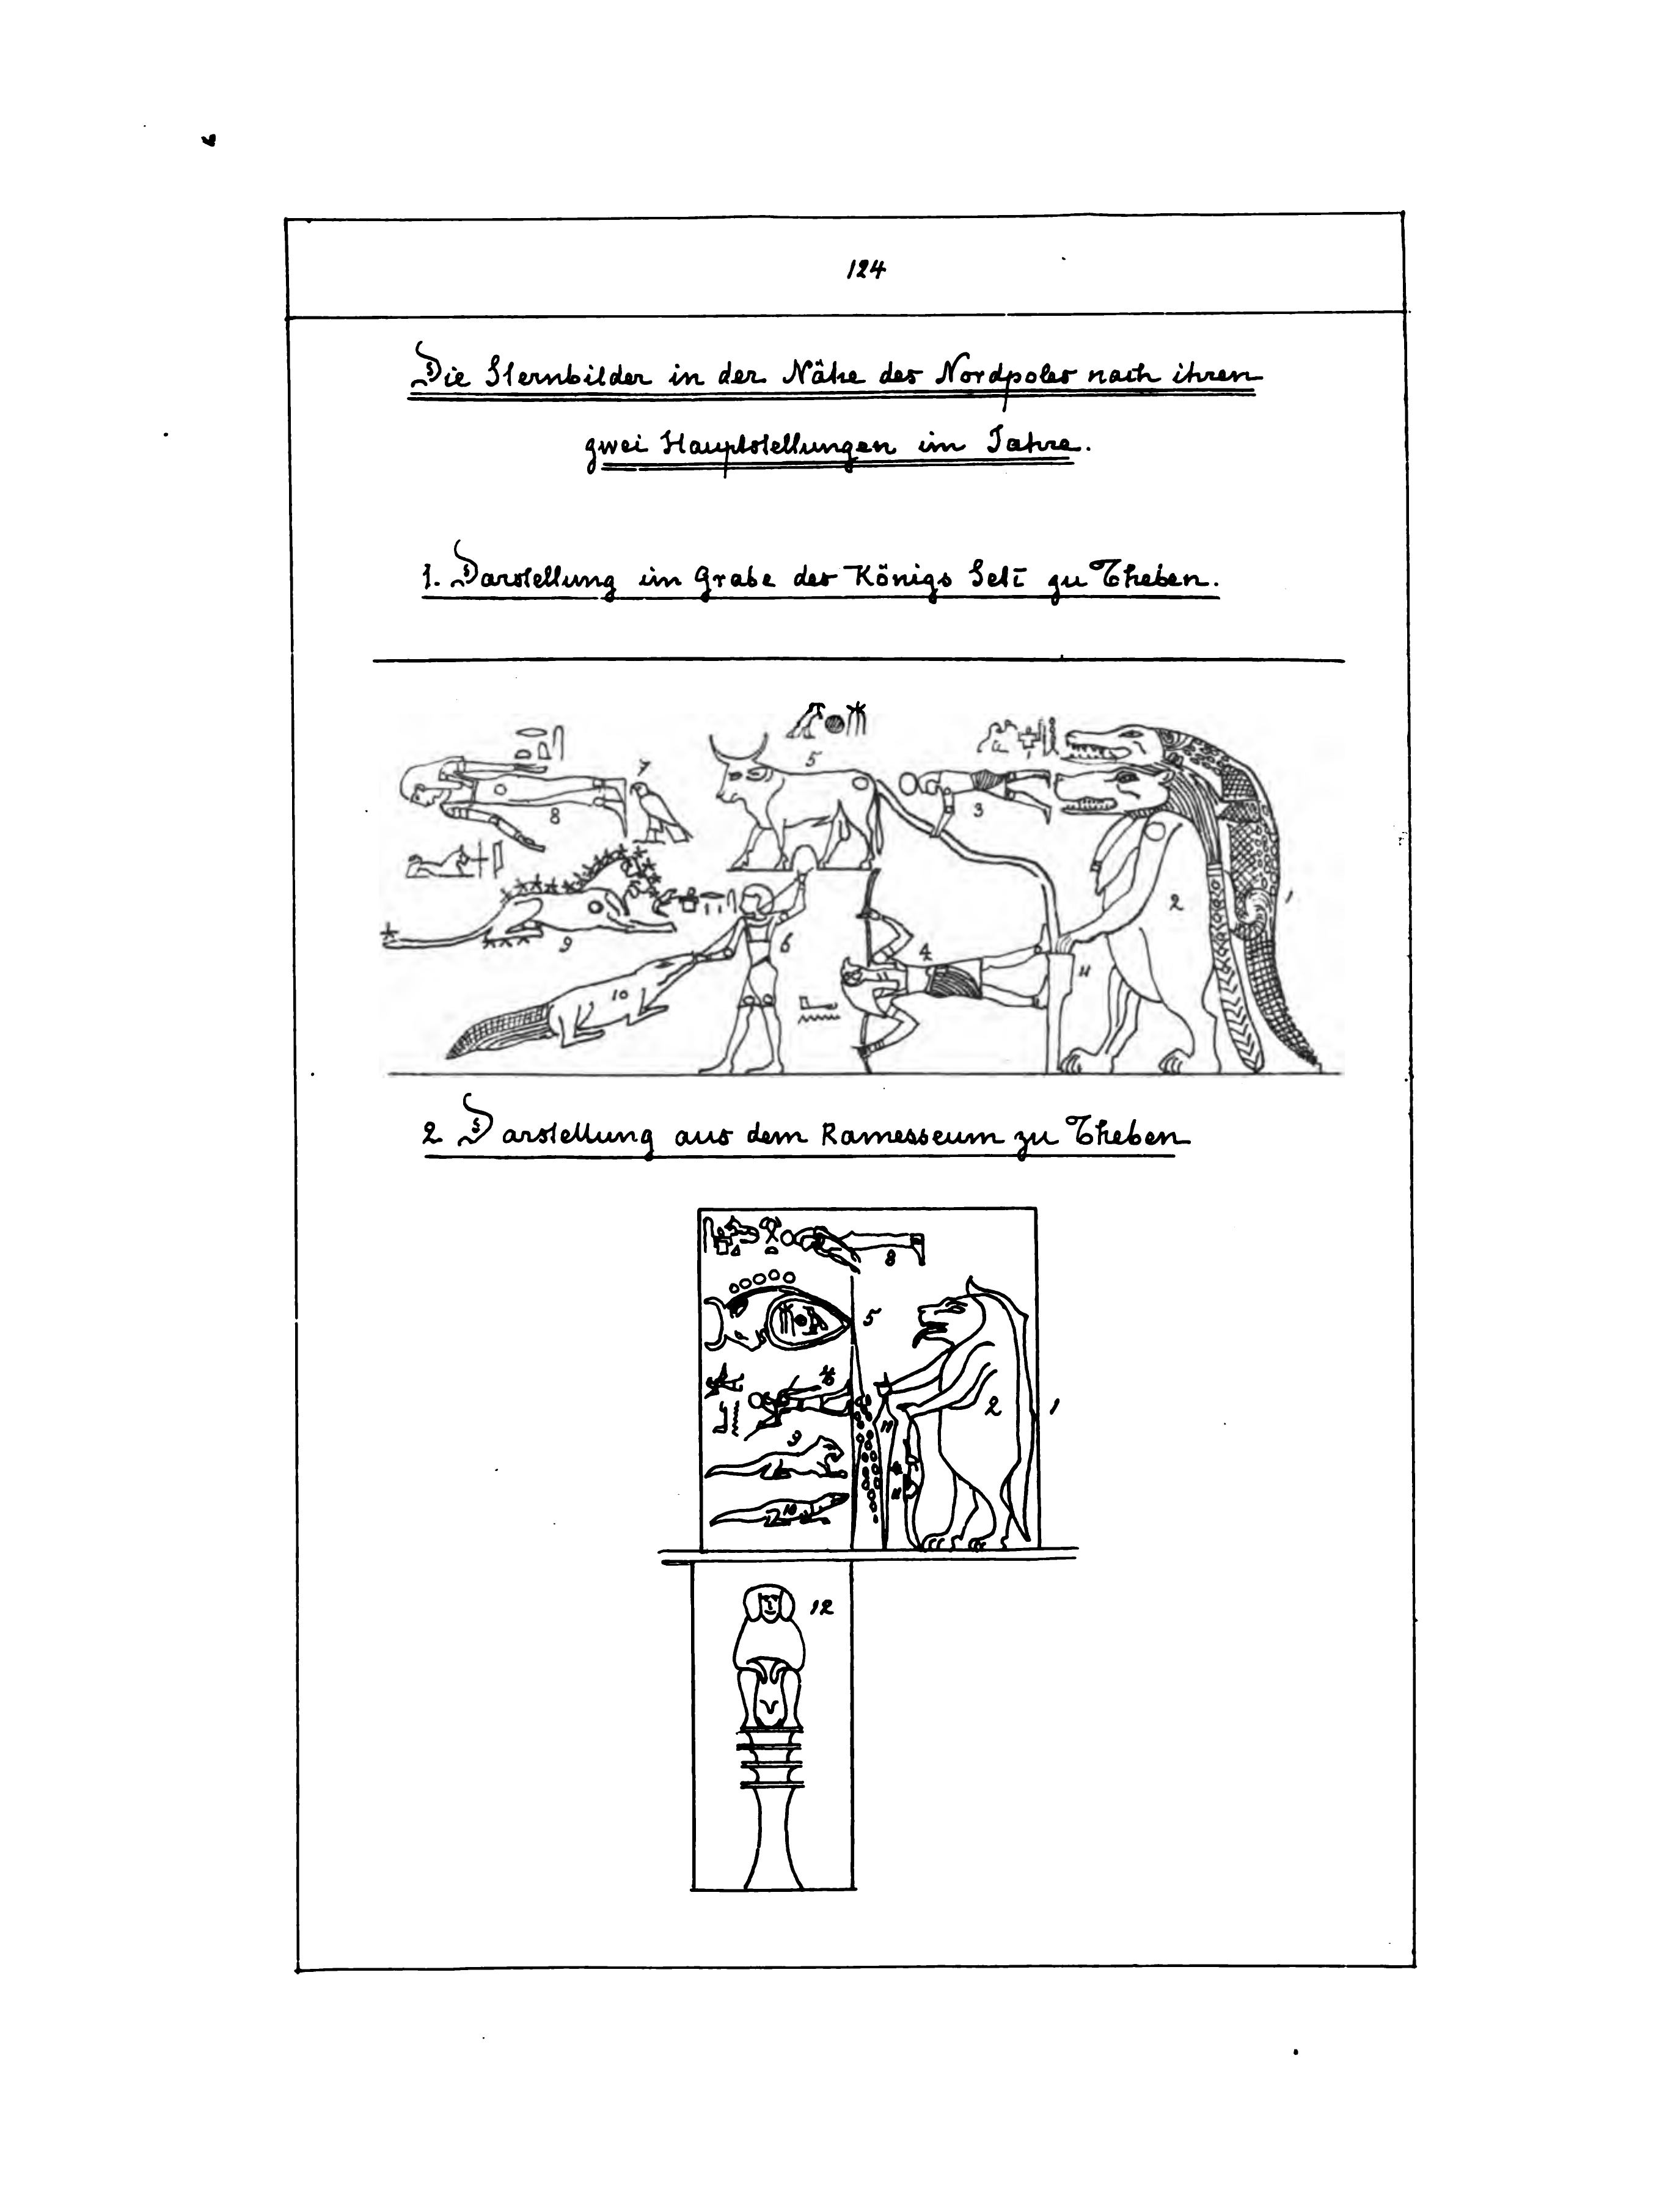 124
Die Sternbilder in der Nähe des Nordpoles nach ihren
zwei Hauptstellungen im Jahre.
1. Darstellung im Grabe des Königs Seti zu Theben.
5
7
8
3
2
1
9
6
4
11
10
2 Darstellung aus dem Ramesseum zu Theben
8
5
2
1
9
11
10
12